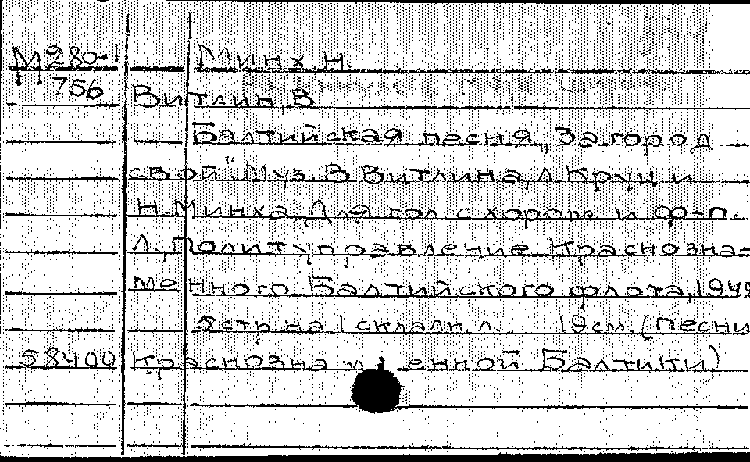 М280-1 Минх Н.
756 Витлин, В
Балтийская песня „За город
свой" Муз. В Витлина, Л Круц и
Н. Минха. Для гол с хором и ф-п.
Л., Политуправление Краснозна-
менного Балтийского флота, 194
8 стр. на 1 складн. л. 19 см. (Песни
58400 краснознаменной Балтики)